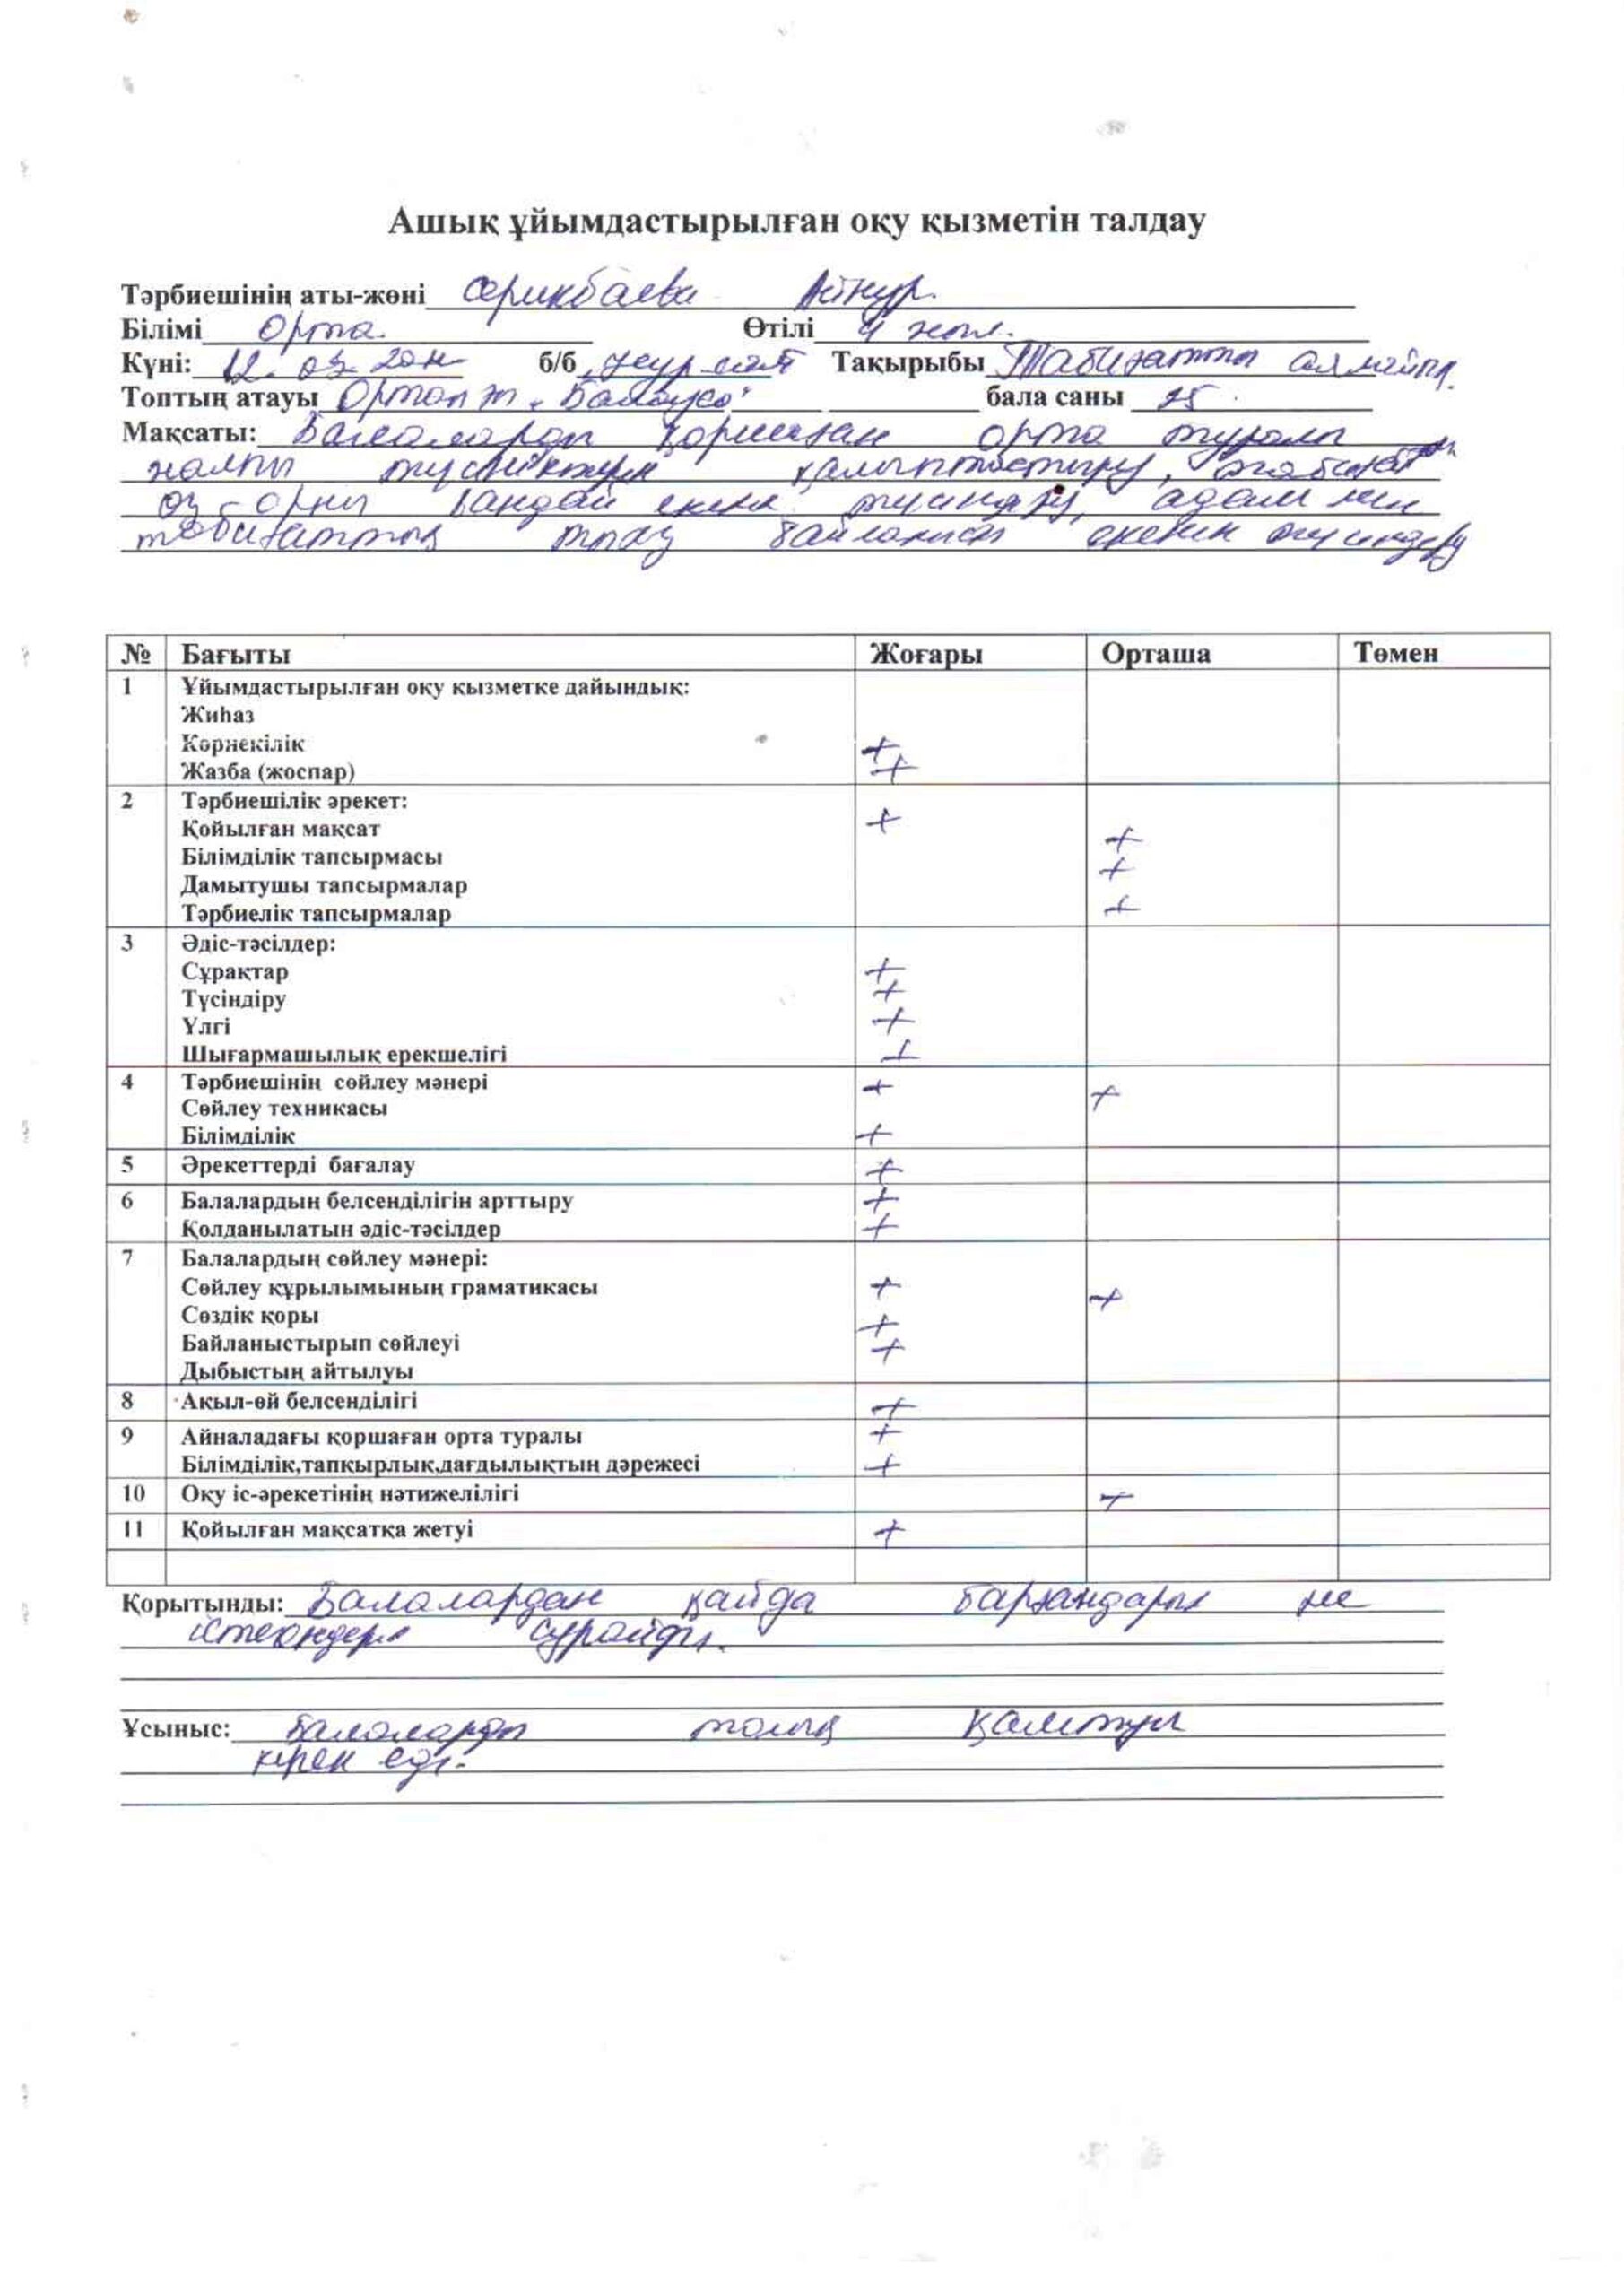 Ашық ұйымдастырылған оқу қызметін талдау
Тәрбиешінің аты-жөні Серикбаева Айнур.
Білімі Орта. Өтілі 4 жыл.
Күні: 12. 03 б/б Тақырыбы Табиғатты аялайық.
Топтың атауы Ортаңғы "Балауса" бала саны 25.
Мақсаты: Балаларды қоршаған орта туралы
жалпы түсініктерін қалыптастыру, табиғаттың
өз орны қандай екенін түсіндіру, адам мен
табиғаттың тығыз байланысы екенін түсіндіру
№ Бағыты Жоғары Орташа Төмен
1 Ұйымдастырылған оқу қызметке дайындық:
Жиһаз
Көрнекілік +
Жазба (жоспар) +
2 Тәрбиешілік әрекет:
Қойылған мақсат +
Білімділік тапсырмасы +
Дамытушы тапсырмалар +
Тәрбиелік тапсырмалар +
3 Әдіс-тәсілдер:
Сұрақтар +
Түсіндіру +
Үлгі +
Шығармашылық ерекшелігі +
4 Тәрбиешінің сөйлеу мәнері +
Сөйлеу техникасы +
Білімділік +
5 Әрекеттерді бағалау +
6 Балалардың белсенділігін арттыру +
Қолданылатын әдіс-тәсілдер +
7 Балалардың сөйлеу мәнері:
Сөйлеу құрылымының граматикасы +
Сөздік қоры +
Байланыстырып сөйлеуі +
Дыбыстың айтылуы +
8 Ақыл-ой белсенділігі +
9 Айналадағы қоршаған орта туралы +
Білімділік,тапқырлық,дағдылықтың дәрежесі +
10 Оқу іс-әрекетінің нәтижелілігі +
11 Қойылған мақсатқа жетуі +
Қорытынды: Балалардан қайда барғандарын не
істегендерін сұрайды.
Ұсыныс: балаларды толық қамтуы
керек еді.